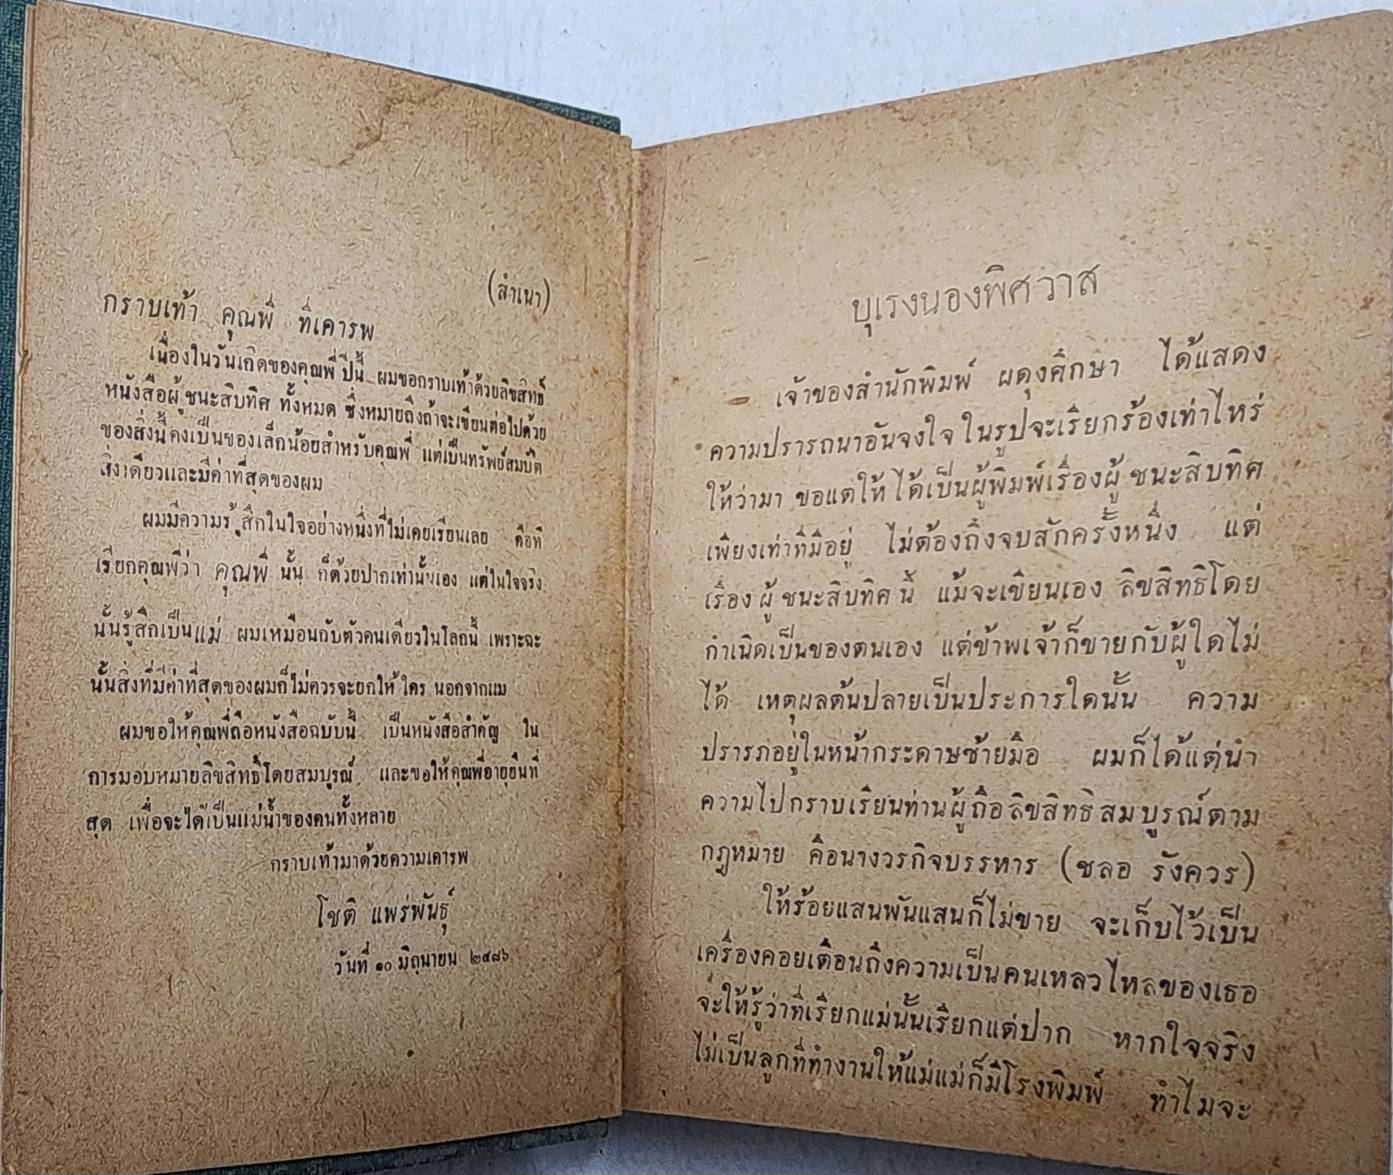 (สำเนา)
กราบเท้า คุณพี่ ที่เคารพ
เนื่องในวันเกิดของคุณพี่ปีนี้ ผมขอกราบเท้าด้วยลิขสิทธิ์
หนังสือผู้ชนะสิบทิศ ทั้งหมด ซึ่งหมายถึงถ้าจะเขียนต่อไปด้วย
ของสิ่งนี้คงเป็นของเล็กน้อยสำหรับคุณพี่ แต่เป็นทรัพย์สมบัติ
สิ่งเดียวและมีค่าที่สุดของผม
ผมมีความรู้สึกในใจอย่างหนึ่งที่ไม่เคยเรียนเลย คือที่
เรียกคุณพี่ว่า คุณพี่ นั้น ก็ด้วยปากเท่านั้นเอง แต่ในใจจริง
นั้นรู้สึกเป็นแม่ ผมเหมือนกับตัวคนเดียวในโลกนี้ เพราะฉะ
นั้นสิ่งที่มีค่าที่สุดของผมก็ไม่ควรจะยกให้ใคร นอกจากแม่
ผมขอให้คุณพี่ถือหนังสือฉบับนี้ เป็นหนังสือสำคัญ ใน
การมอบหมายลิขสิทธิ์โดยสมบูรณ์ และขอให้คุณพี่อายุยืนที่
สุด เพื่อจะได้เป็นแม่น้ำของคนทั้งหลาย
กราบเท้ามาด้วยความเคารพ
โชติ แพร่พันธุ์
วันที่ ๑๐ มิถุนายน ๒๔๘๖
บุเรงนองพิศวาส
เจ้าของสำนักพิมพ์ ผดุงศึกษา ได้แสดง
ความปรารถนาอันจงใจ ในรูปจะเรียกร้องเท่าไหร่
ให้ว่ามา ขอแต่ให้ได้เป็นผู้พิมพ์เรื่องผู้ชนะสิบทิศ
เพียงเท่าที่มีอยู่ ไม่ต้องถึงจบสักครั้งหนึ่ง แต่
เรื่องผู้ชนะสิบทิศนี้ แม้จะเขียนเอง ลิขสิทธิโดย
กำเนิดเป็นของตนเอง แต่ข้าพเจ้าก็ขายกับผู้ใดไม่
ได้ เหตุผลต้นปลายเป็นประการใดนั้น ความ
ปรารภอยู่ในหน้ากระดาษซ้ายมือ ผมก็ได้แต่นำ
ความไปกราบเรียนท่านผู้ถือลิขสิทธิสมบูรณ์ตาม
กฎหมาย คือนางวรกิจบรรหาร (ชลอ รังควร)
ให้ร้อยแสนพันแสนก็ไม่ขาย จะเก็บไว้เป็น
เครื่องคอยเตือนถึงความเป็นคนเหลวไหลของเธอ
จะให้รู้ว่าที่เรียกแม่นั้นเรียกแต่ปาก หากใจจริง
ไม่เป็นลูกที่ทำงานให้แม่แม่ก็มีโรงพิมพ์ ทำไมจะ